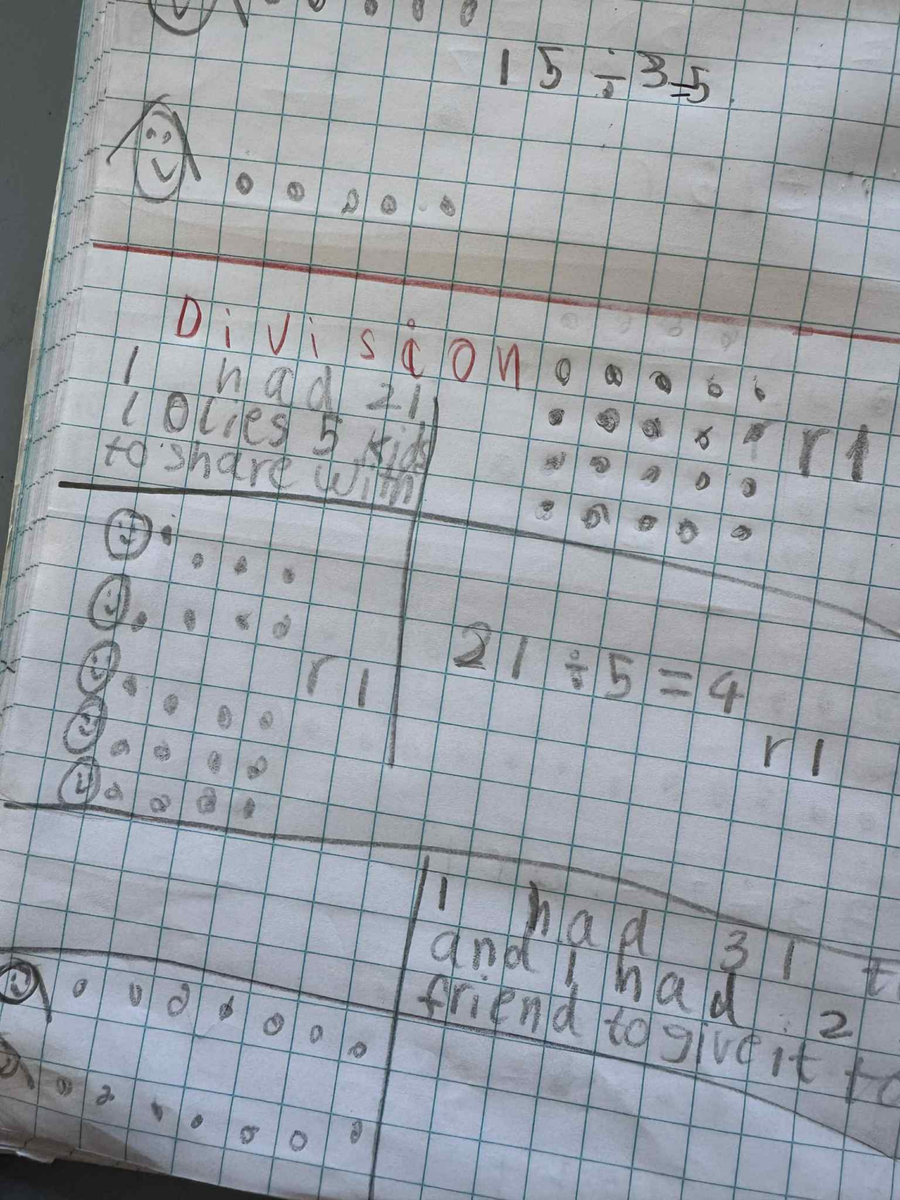 15÷3=5
Division
I had 21
lolies 5 kids
to share with
r1
r1
21÷5=4
r1
I had 31
and I had 2
friend to give it to